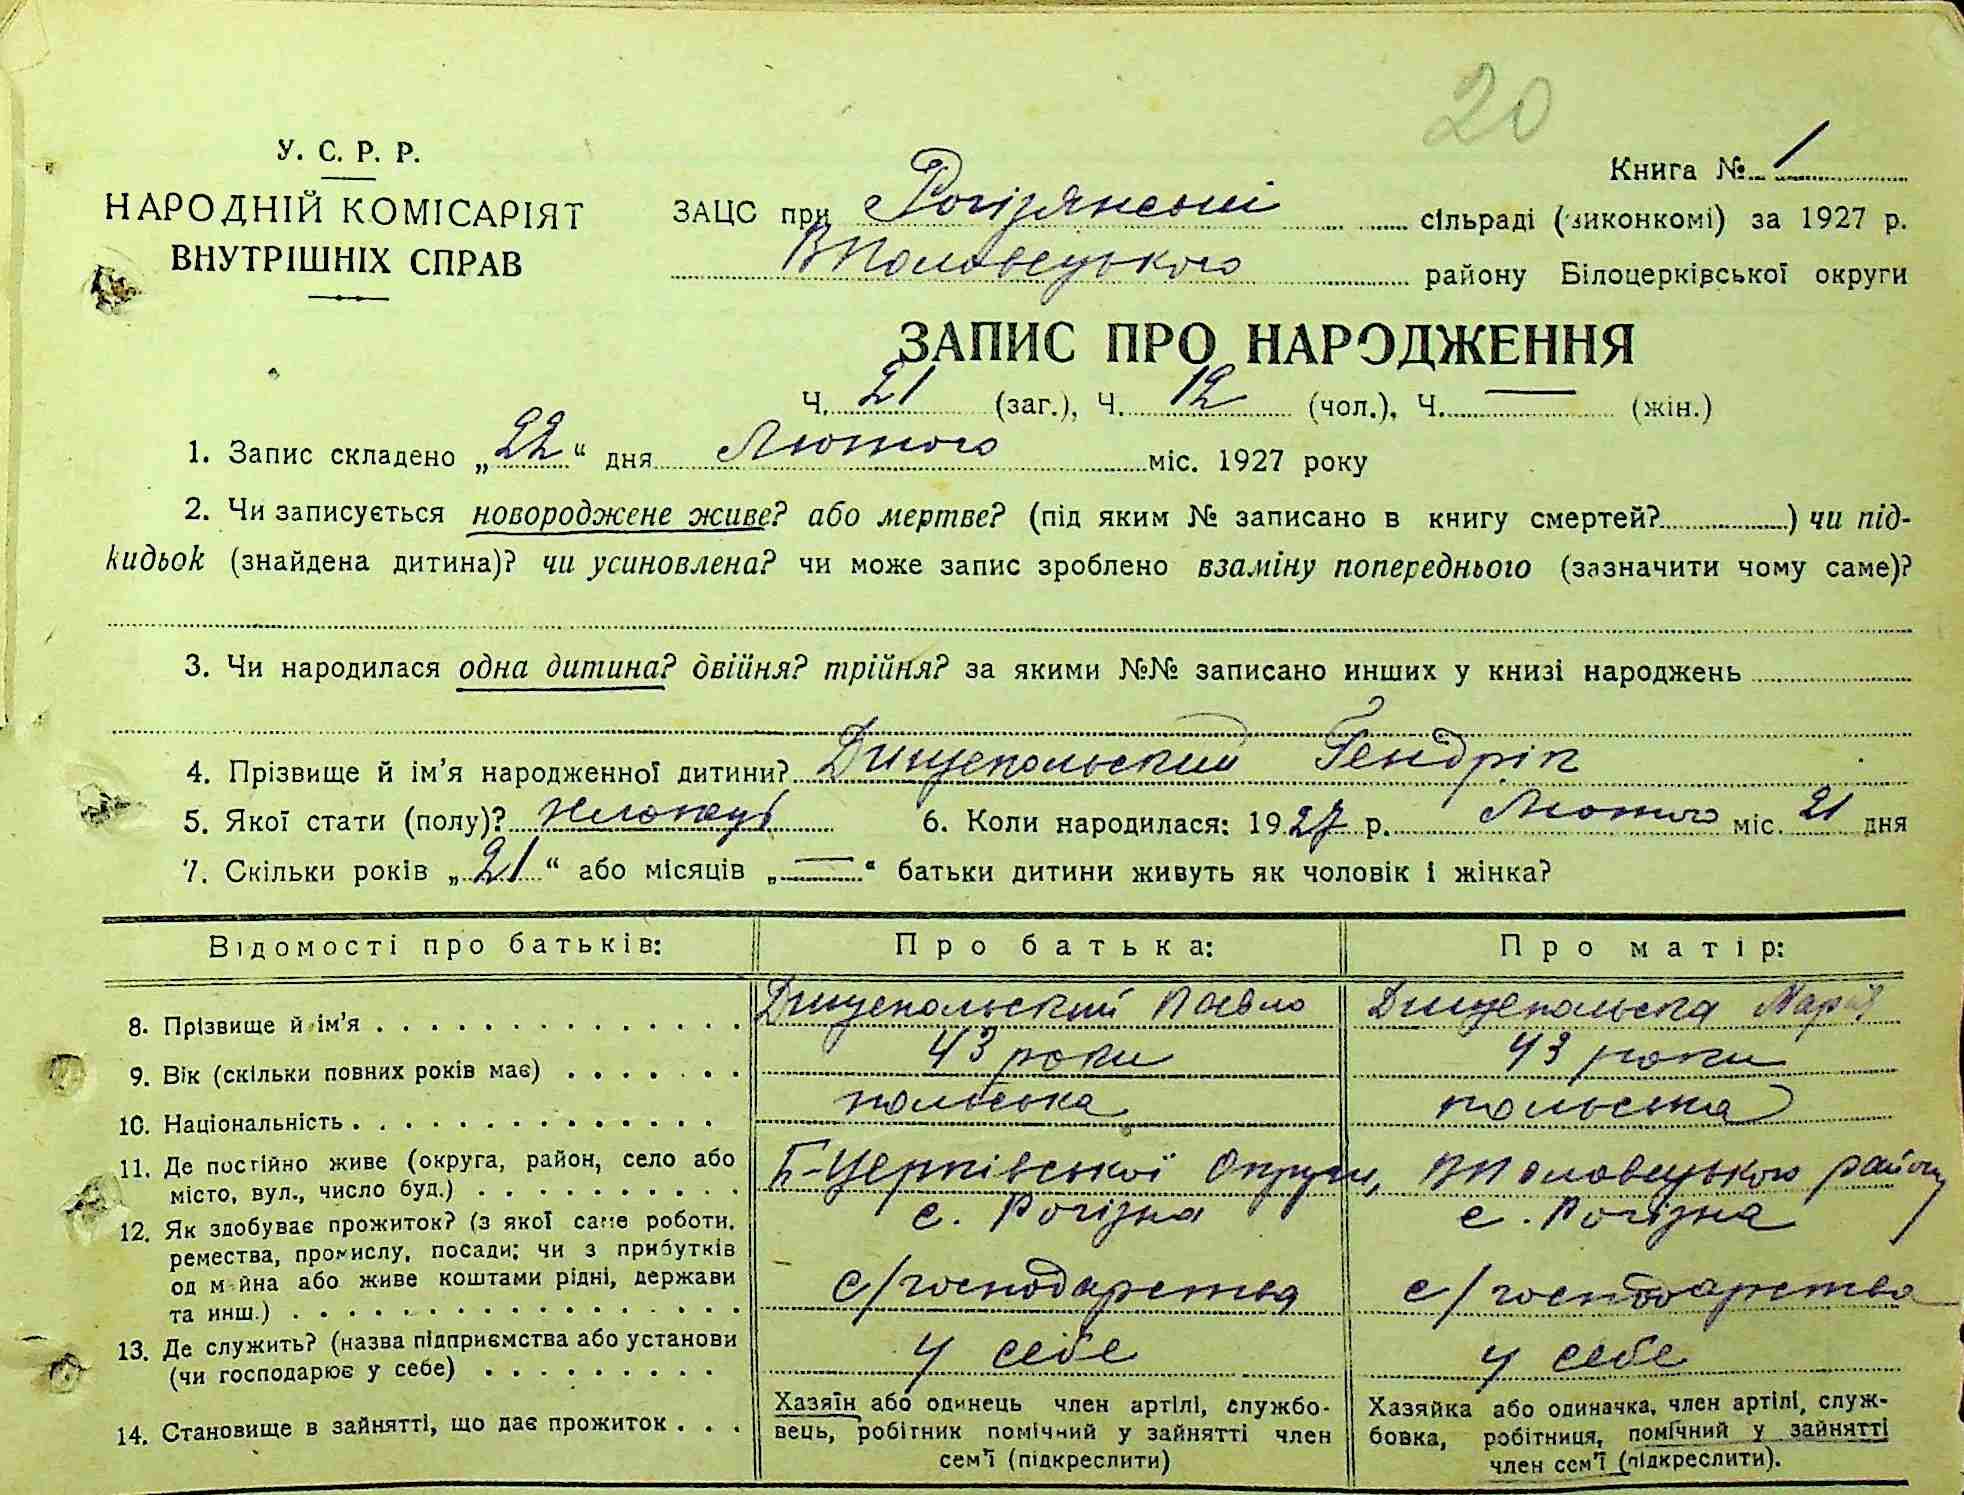 20
У. С. Р. Р.
НАРОДНІЙ КОМІСАРІЯТ
ВНУТРІШНІХ СПРАВ
Книга № 1
ЗАЦС при Рогізянській сільраді (виконкомі) за 1927 р.
ВПоловецького району Білоцерківської округи
ЗАПИС ПРО НАРОДЖЕННЯ
Ч. 21 (заг.), Ч. 12 (чол.), Ч. — (жін.)
1. Запис складено „22“ дня Лютого міс. 1927 року
2. Чи записується новороджене живе? або мертве? (під яким № записано в книгу смертей?) чи під-
кидьок (знайдена дитина)? чи усиновлена? чи може запис зроблено взаміну попереднього (зазначити чому саме)?
3. Чи народилася одна дитина? двійня? трійня? за якими №№ записано инших у книзі народжень
4. Прізвище й ім'я народженної дитини? Дищепольський Гендрік
5. Якої стати (полу)? Хлопець 6. Коли народилася: 1927 р. Лютого міс. 21 дня
7. Скільки років „21“ або місяців „—“ батьки дитини живуть як чоловік і жінка?
Відомості про батьків: Про батька: Про матір:
8. Прізвище й ім'я Дищепольський Павло Дищепольска Марія
9. Вік (скільки повних років має) 43 роки 43 роки
10. Національність польська польська
11. Де постійно живе (округа, район, село або місто, вул., число буд.) Б-Церківської Округи, ВПоловецького району
с. Рогізна с. Рогізна
12. Як здобуває прожиток? (з якої саме роботи, ремества, промислу, посади; чи з прибутків
од майна або живе коштами рідні, держави та инш.) с/господарства с/господарства
13. Де служить? (назва підприємства або установи
(чи господарює у себе) у себе у себе
14. Становище в зайнятті, що дає прожиток
Хазяїн або одинець член артілі, службо-
вець, робітник помічний у зайнятті член
сем'ї (підкреслити)
Хазяйка або одиначка, член артілі, служ-
бовка, робітниця, помічний у зайнятті
член сем'ї (підкреслити).